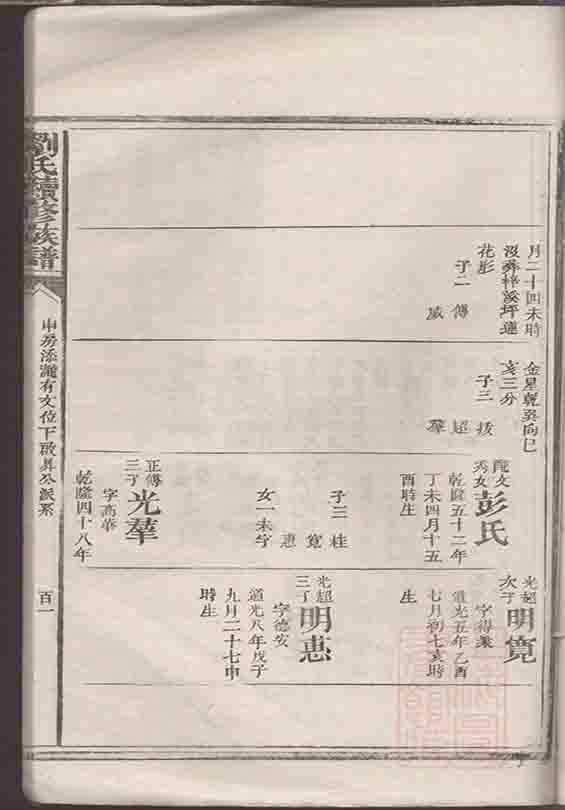 月二十四未時
沒葬梓溪坪蓮
花形
子二 傅
威
金星乾巽向巳
亥三分
子三 拔
超
羣
秀文
女彭氏
乾隆五十二年
丁未四月十五
酉時生
子三 桂
寬
惠
女一未字
正傅
三子
光羣
字高華
乾隆四十八年
光超
次子
明寬
字得衆
道光五年乙酉
七月初七亥時
生
光超
三子
明惠
字德安
道光八年戊子
九月二十七申
時生
劉氏續修族譜
申房添瀧有文位下啟昇公派系
百一